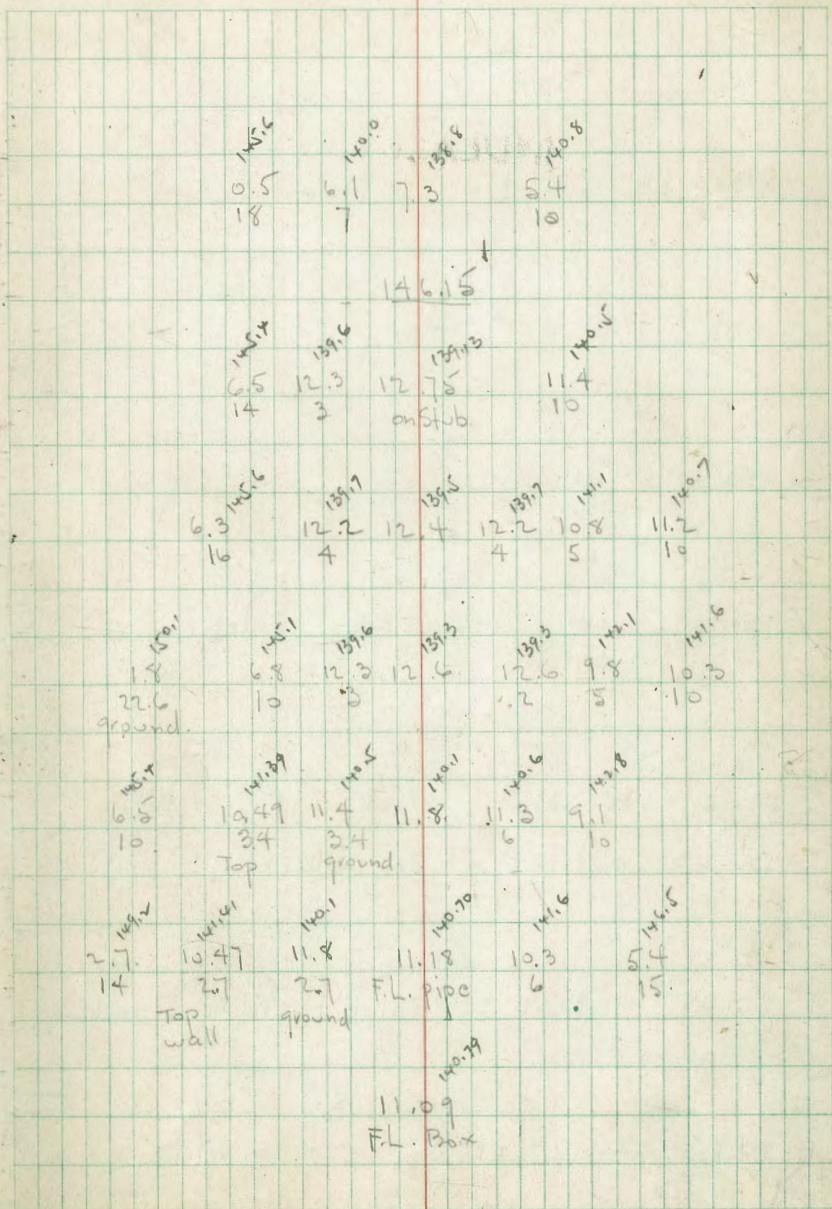 145.6 140.0 138.8 140.8
0.5 6.1 7.3 5.4
18 7 10
146.15
145.4 139.6 139.13 140.5
6.5 12.3 12.75 11.4
14 3 on Stub 10
145.6 139.7 139.5 139.7 141.1 140.7
6.3 12.2 12.4 12.2 10.8 11.2
16 4 4 5 10
150.1 145.1 139.6 139.3 139.3 142.1 141.6
1.8 6.8 12.3 12.6 12.6 9.8 10.3
22.6 10 3 2 5 10
ground
145.4 141.39 140.5 140.1 140.6 142.8
6.5 10.49 11.4 11.8 11.3 9.1
10 3.4 3.4 6 10
Top ground
149.2 141.41 140.1 140.70 141.6 146.5
2.7 10.47 11.8 11.18 10.3 5.4
14 2.7 2.7 F.L. pipe 6 15
Top ground
wall
140.79
11.09
F.L. Box